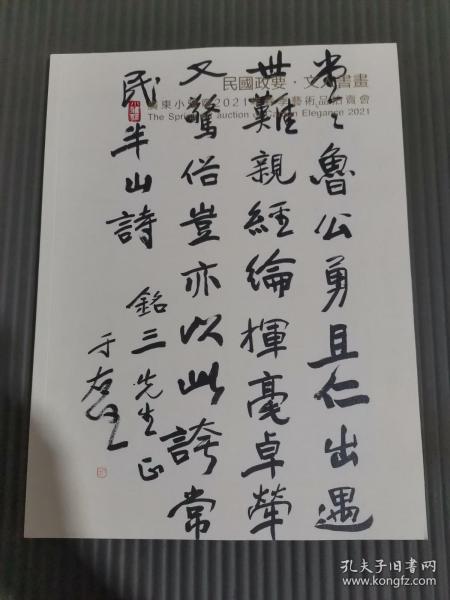 民國政要·文 書畫
東小 2021 季藝術品拍賣會
The Spring auction Elegance 2021
堂々魯公勇且仁出遇
世難親經綸揮毫卓犖
又驚俗豈亦以此誇常
民半山詩
銘三先生正
于右任
孔夫子旧书网
www.kongfz.com